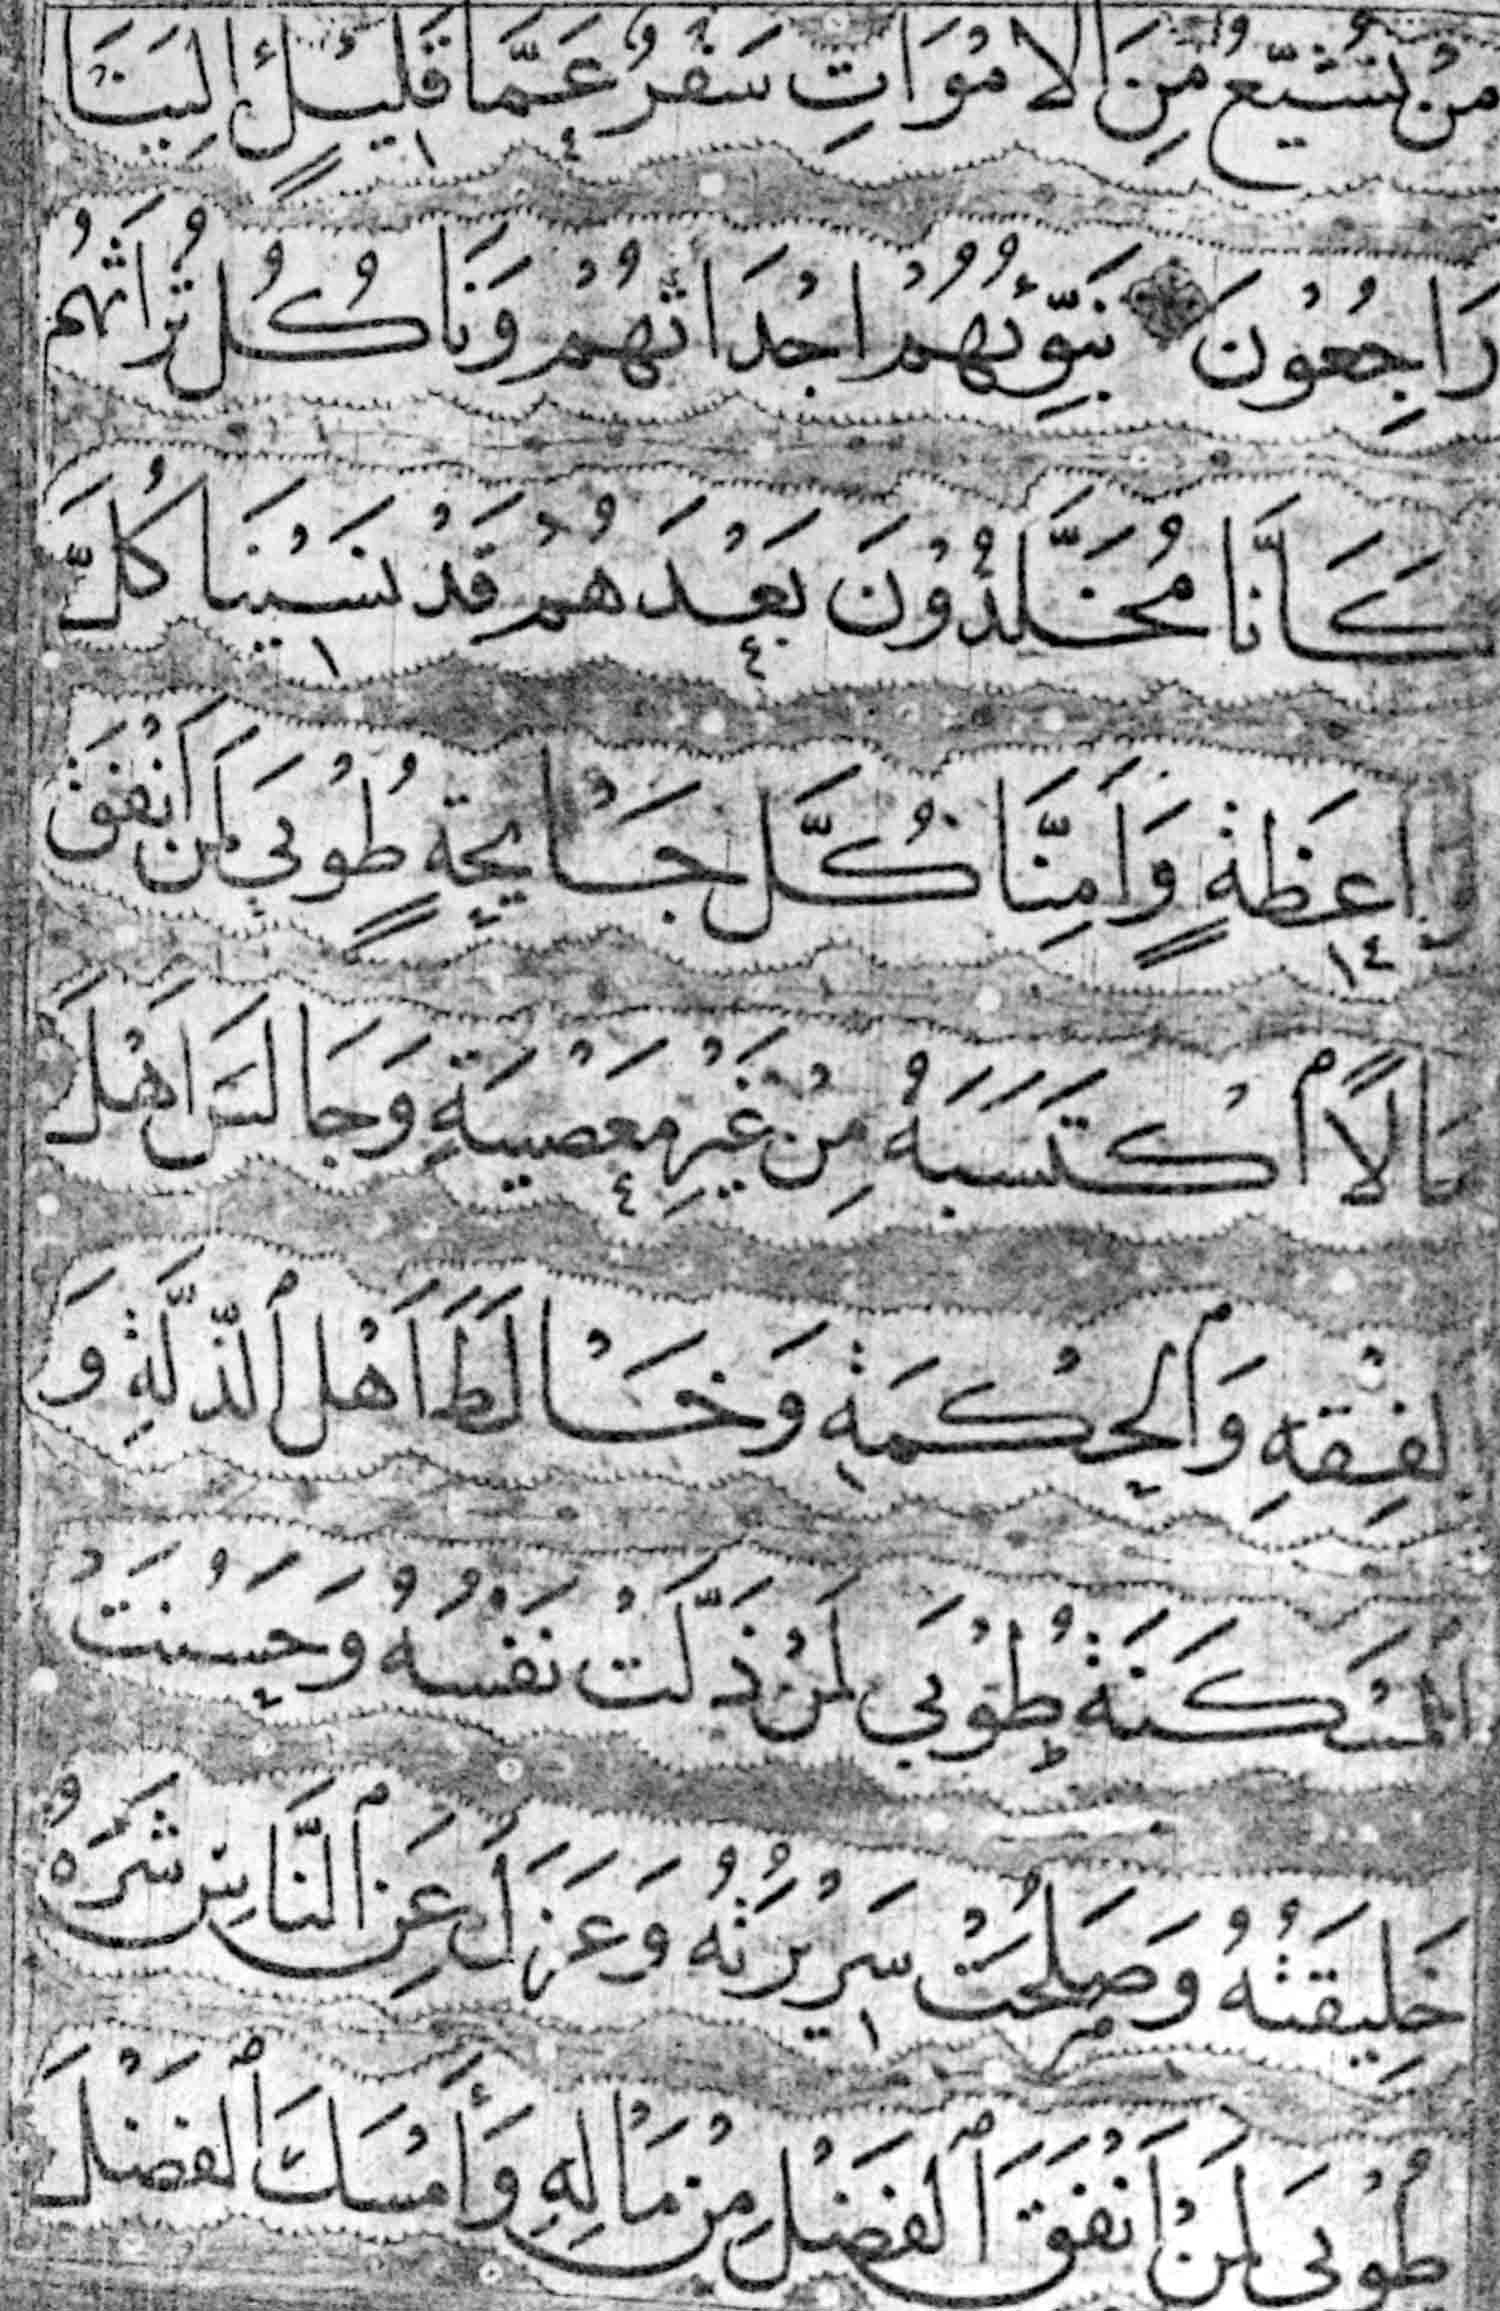 مَنْ نُشَيِّعُ مِنَ الْاَمْوَاتِ سَفْرٌ عَمَّا قَلِيلٍ اِلَيْنَا
رَاجِعُونَ نُبَوِّئُهُمْ اَجْدَاثَهُمْ وَنَاْكُلُ تُرَاثَهُمْ
كَاَنَّا مُخَلَّدُونَ بَعْدَهُمْ قَدْ نَسِينَا كُلَّ
وَاعِظَةٍ وَاَمِنَّا كُلَّ جَايِحَةٍ طُوبَى لِمَنْ اَنْفَقَ
مَالًا اكْتَسَبَهُ مِنْ غَيْرِ مَعْصِيَةٍ وَجَالَسَ اَهْلَ
الفِقْهِ وَالْحِكْمَةِ وَخَالَطَ اَهْلَ الذِّلَّةِ وَ
الْمَسْكَنَةِ طُوبَى لِمَنْ ذَلَّتْ نَفْسُهُ وَحَسُنَتْ
خَلِيقَتُهُ وَصَلُحَتْ سَرِيرَتُهُ وَعَزَلَ عَنِ النَّاسِ شَرَّهُ
طُوبَى لِمَنْ اَنْفَقَ الْفَضْلَ مِنْ مَالِهِ وَاَمْسَكَ الْفَضْلَ